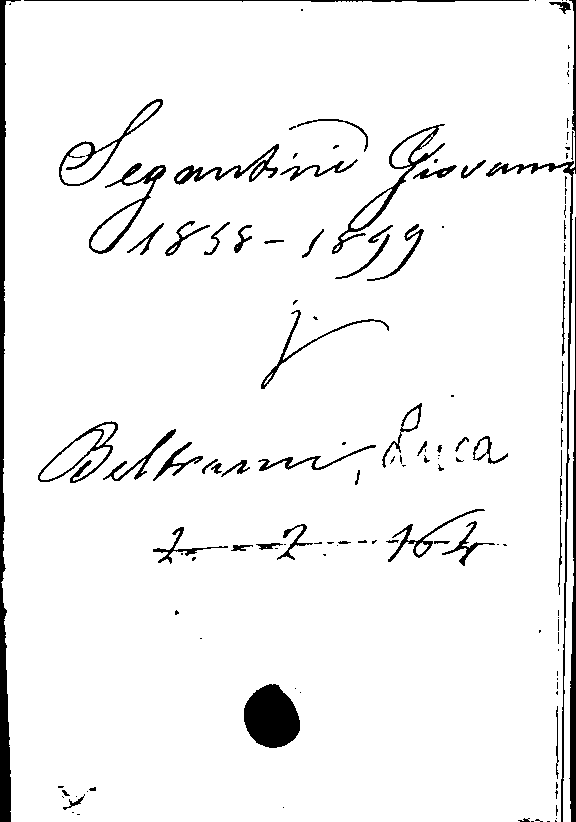 Segantini Giovanni
1858-1899
j.
Beltrami, Luca
2. - 2. 164